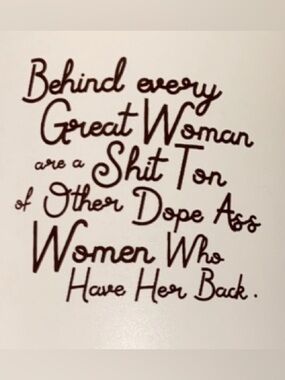 Behind every
Great Woman
are a Shit Ton
of Other Dope Ass
Women Who
Have Her Back.